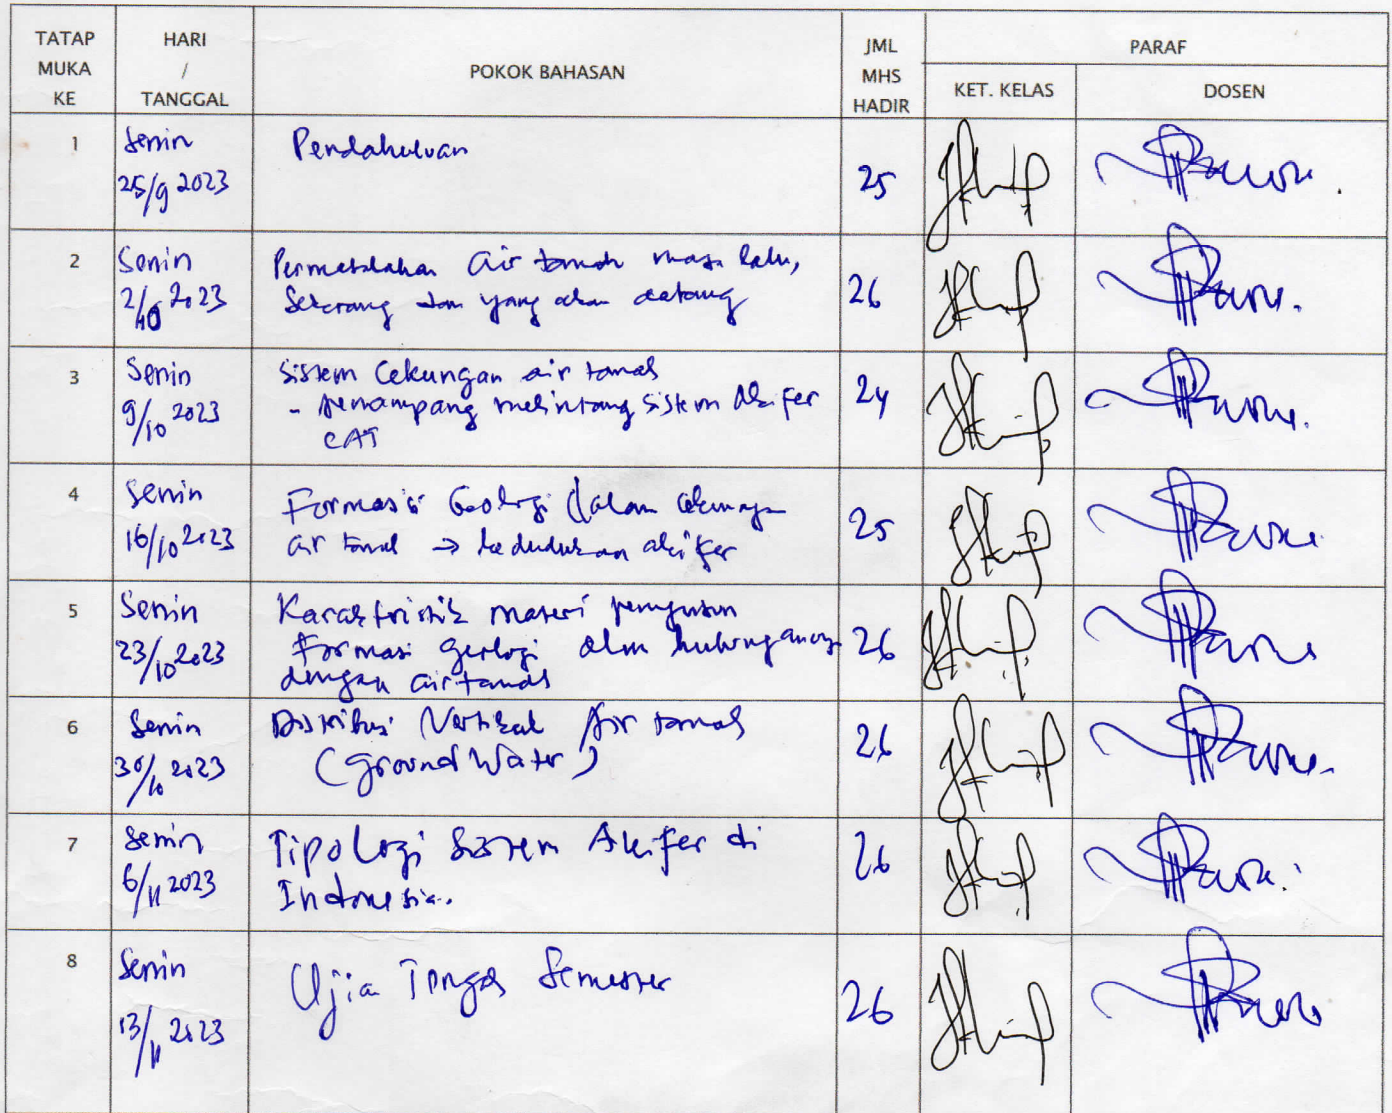 TATAP MUKA KE
HARI / TANGGAL
POKOK BAHASAN
JML MHS HADIR
PARAF
KET. KELAS
DOSEN
1
Senin
25/9 2023
Pendahuluan
25
2
Senin
2/10 2023
Permasalahan air tanah masa lalu,
Sekarang dan yang akan datang
26
3
Senin
9/10 2023
Sistem Cekungan air tanah
- penampang melintang sistem Akifer
CAT
24
4
Senin
16/10 2023
Formasi Geologi dalam cekungan
air tanah → kedudukan akifer
25
5
Senin
23/10 2023
Karakteristik materi penyusun
Formasi geologi dan hubungannya
dengan air tanah
26
6
Senin
30/10 2023
Distribusi Vertikal Air tanah
(Ground Water)
26
7
Senin
6/11 2023
Tipologi Sistem Akifer di
Indonesia.
26
8
Senin
13/11 2023
Ujia Tengah Semester
26